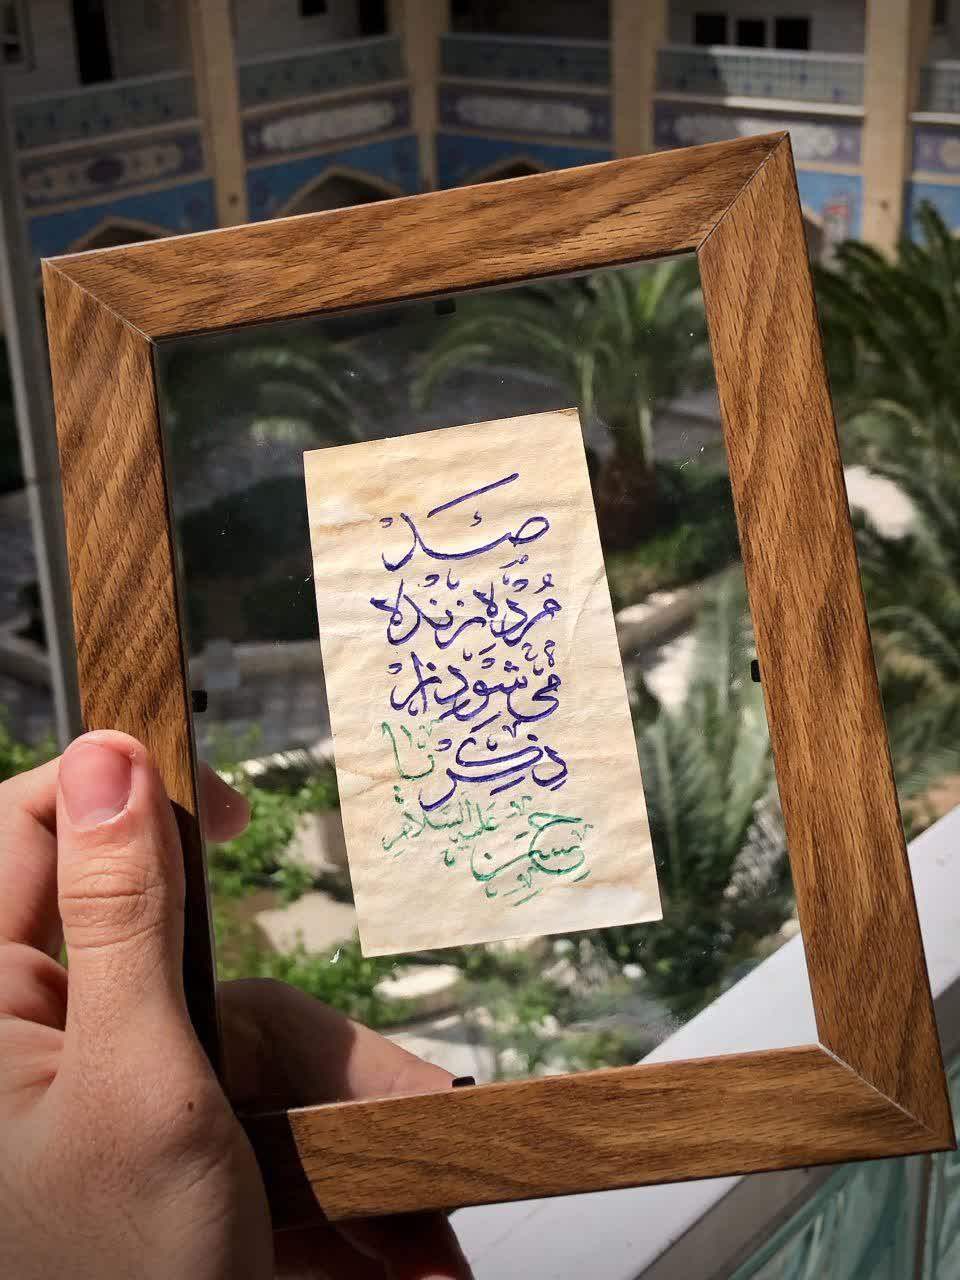 صد
مُرده زنده
می شود از
ذکر یا
حسین علیه السلام